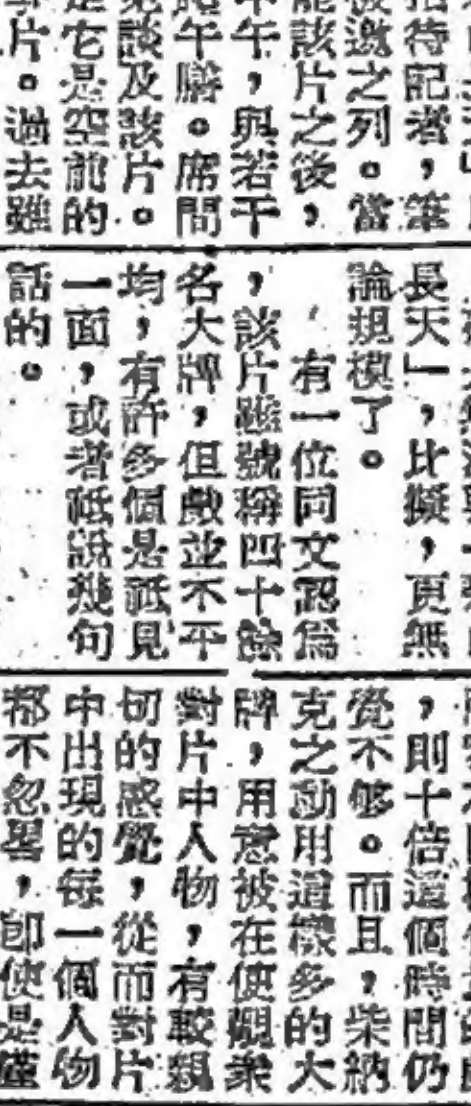 招待記者，筆
被邀之列。當
能該片之後，
中午，與若干
路午膳。席間
見談及該片。
是它是空前的
片。過去雖
長天」，比擬，更無
論規模了。
有一位同文認爲
，該片雖號稱四十餘
名大牌，但戲並不平
均，有許多個是祗見
一面，或者祗說幾句
話的。
，則十倍這個時間仍
覺不够。而且，柴納
克之動用這樣多的大
牌，用意被在使觀衆
對片中人物，有較親
切的感覺，從而對片
中出現的每一個人物
都不忽畧，即使是僅